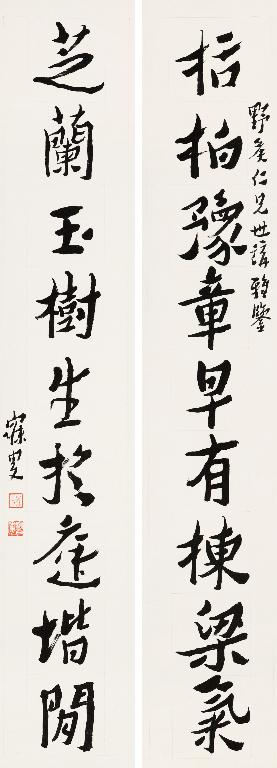 栝柏豫章早有棟梁氣
野矦仁兄世講雅鑒
芝蘭玉樹生於庭堦閒
寐叟